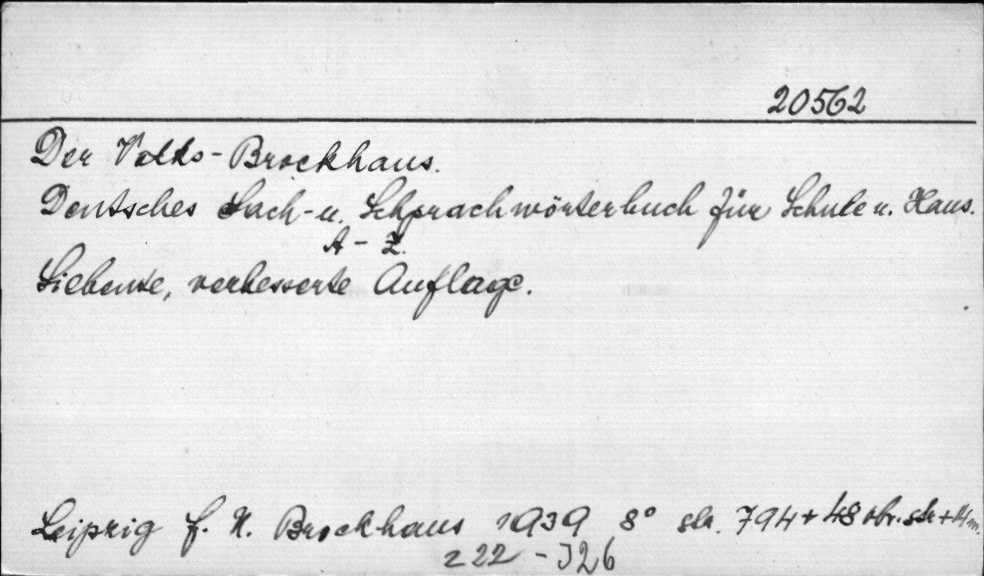 20562
Der Volks-Brockhaus.
Deutsches Sach- u. Schprachwörterbuch für Schule u. Haus.
A-Z.
Siebente, verbesserte Auflage.
Leipzig F. A. Brockhaus 1939 8° str. 794 + 48 obr. str + 4 m.
z 22 - J26